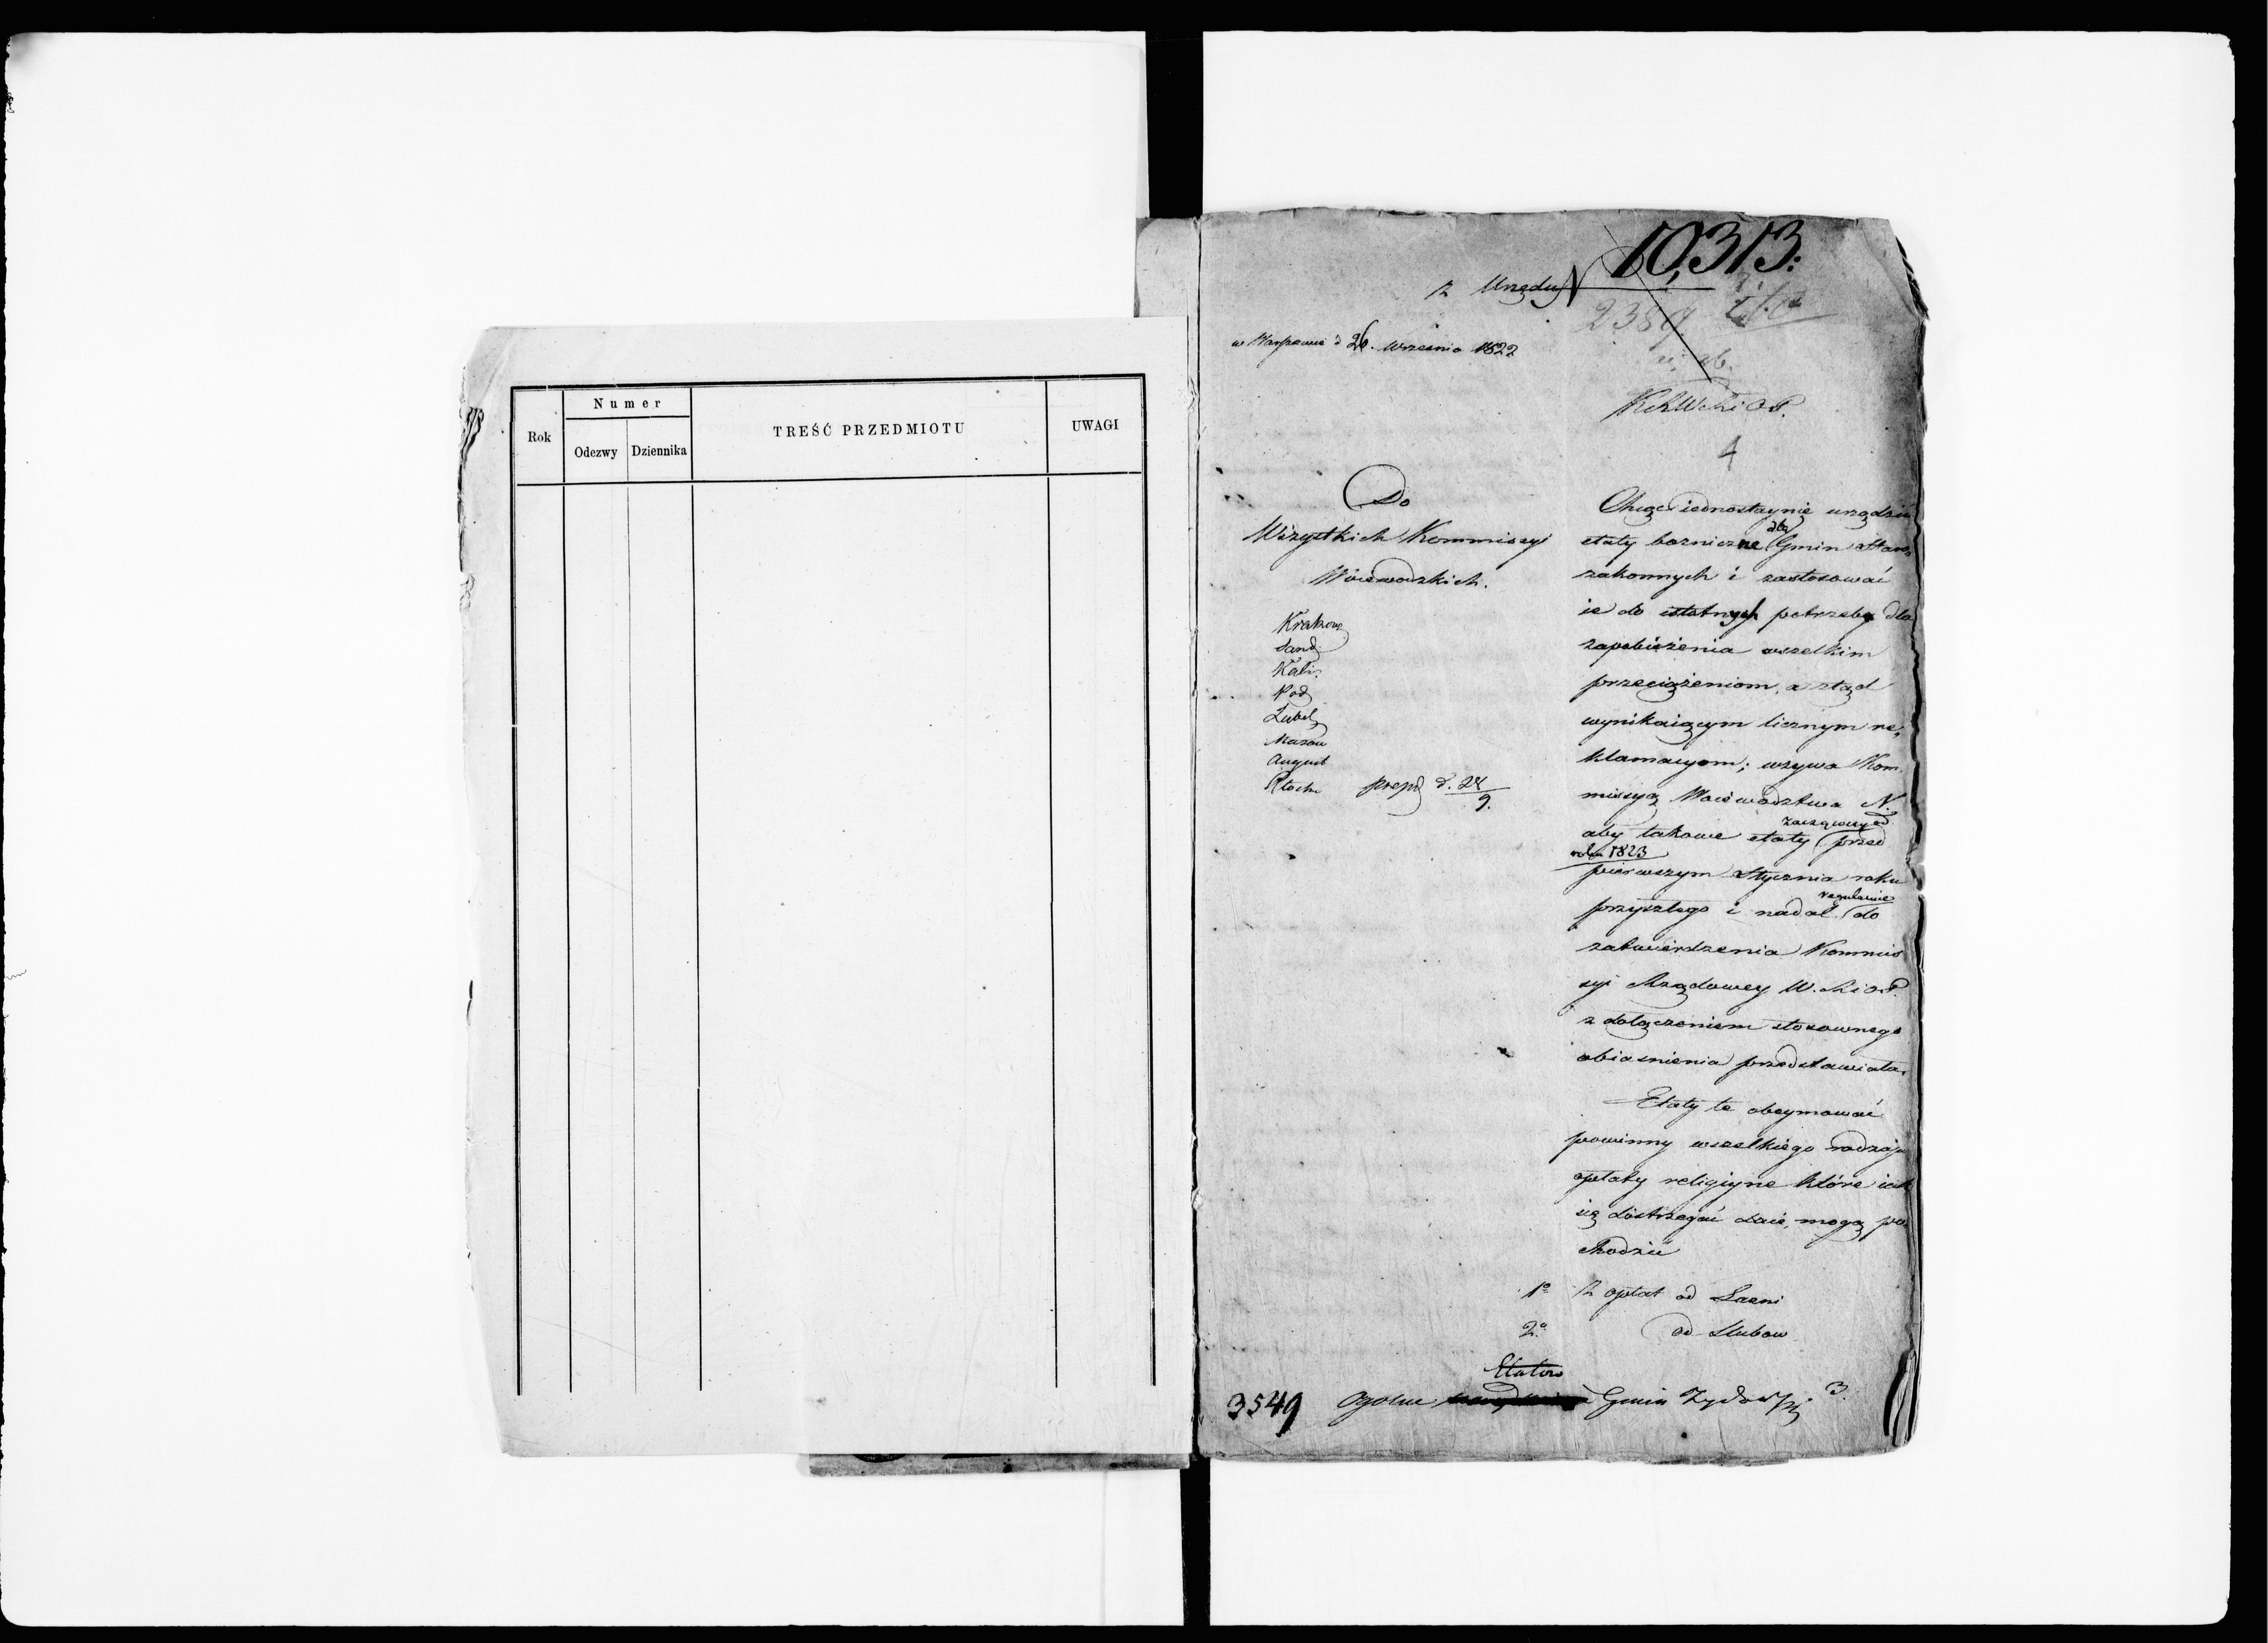 Rok
Numer
Odezwy
Dziennika
TREŚĆ PRZEDMIOTU
UWAGI
10,313.
z Urzędu N
2389
w Warszawie d 26. Września 1822
KRWRiOP.
4
Do
Wszystkich Kommissyi
Woiewodzkich.
Krakow
Sand
Kali.
Pod
Lubel
Mazow
August
Płock
prepd d. 28/9.
Chcąc iednostaynie urządzić
etaty boznicze dla Gmin Staro-
zakonnych i zastosować
ie do istotnych potrzeby dla
zapobieżenia wszelkim
przeciążeniom, a ztąd
wynikaiącym licznym re-
klamacyom; wzywa Kom-
missyą Woiewodztwa N.
zacząwszy od
aby takowe etaty przed
roku 1823
pierwszym Stycznia roku
regularnie
przyszłego i nadal do
zatwierdzenia Kommis
syi Rządowey W. R i O. P.
z dołączeniem stosownego
obiasnienia przedstawiała.
Etaty te obeymować
powinny wszelkiego rodzaju
opłaty religiyne które iak
się dostrzegać daie, mogą po-
chodzić
1o Z opłat od Łaźni
2o od Slubow
Etatow
3549 ogolne Gmin Zydowski 3.